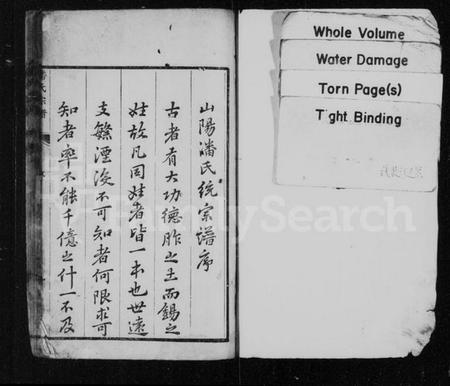 山陽潘氏統宗譜序
古者有大功德胙之土而錫之
姓故凡同姓者皆一本也世遠
支繇湮沒不可知者何限求可
知者率不能千億之什一不及
Whole Volume
Water Damage
Torn Page(s)
Tight Binding
FamilySearch